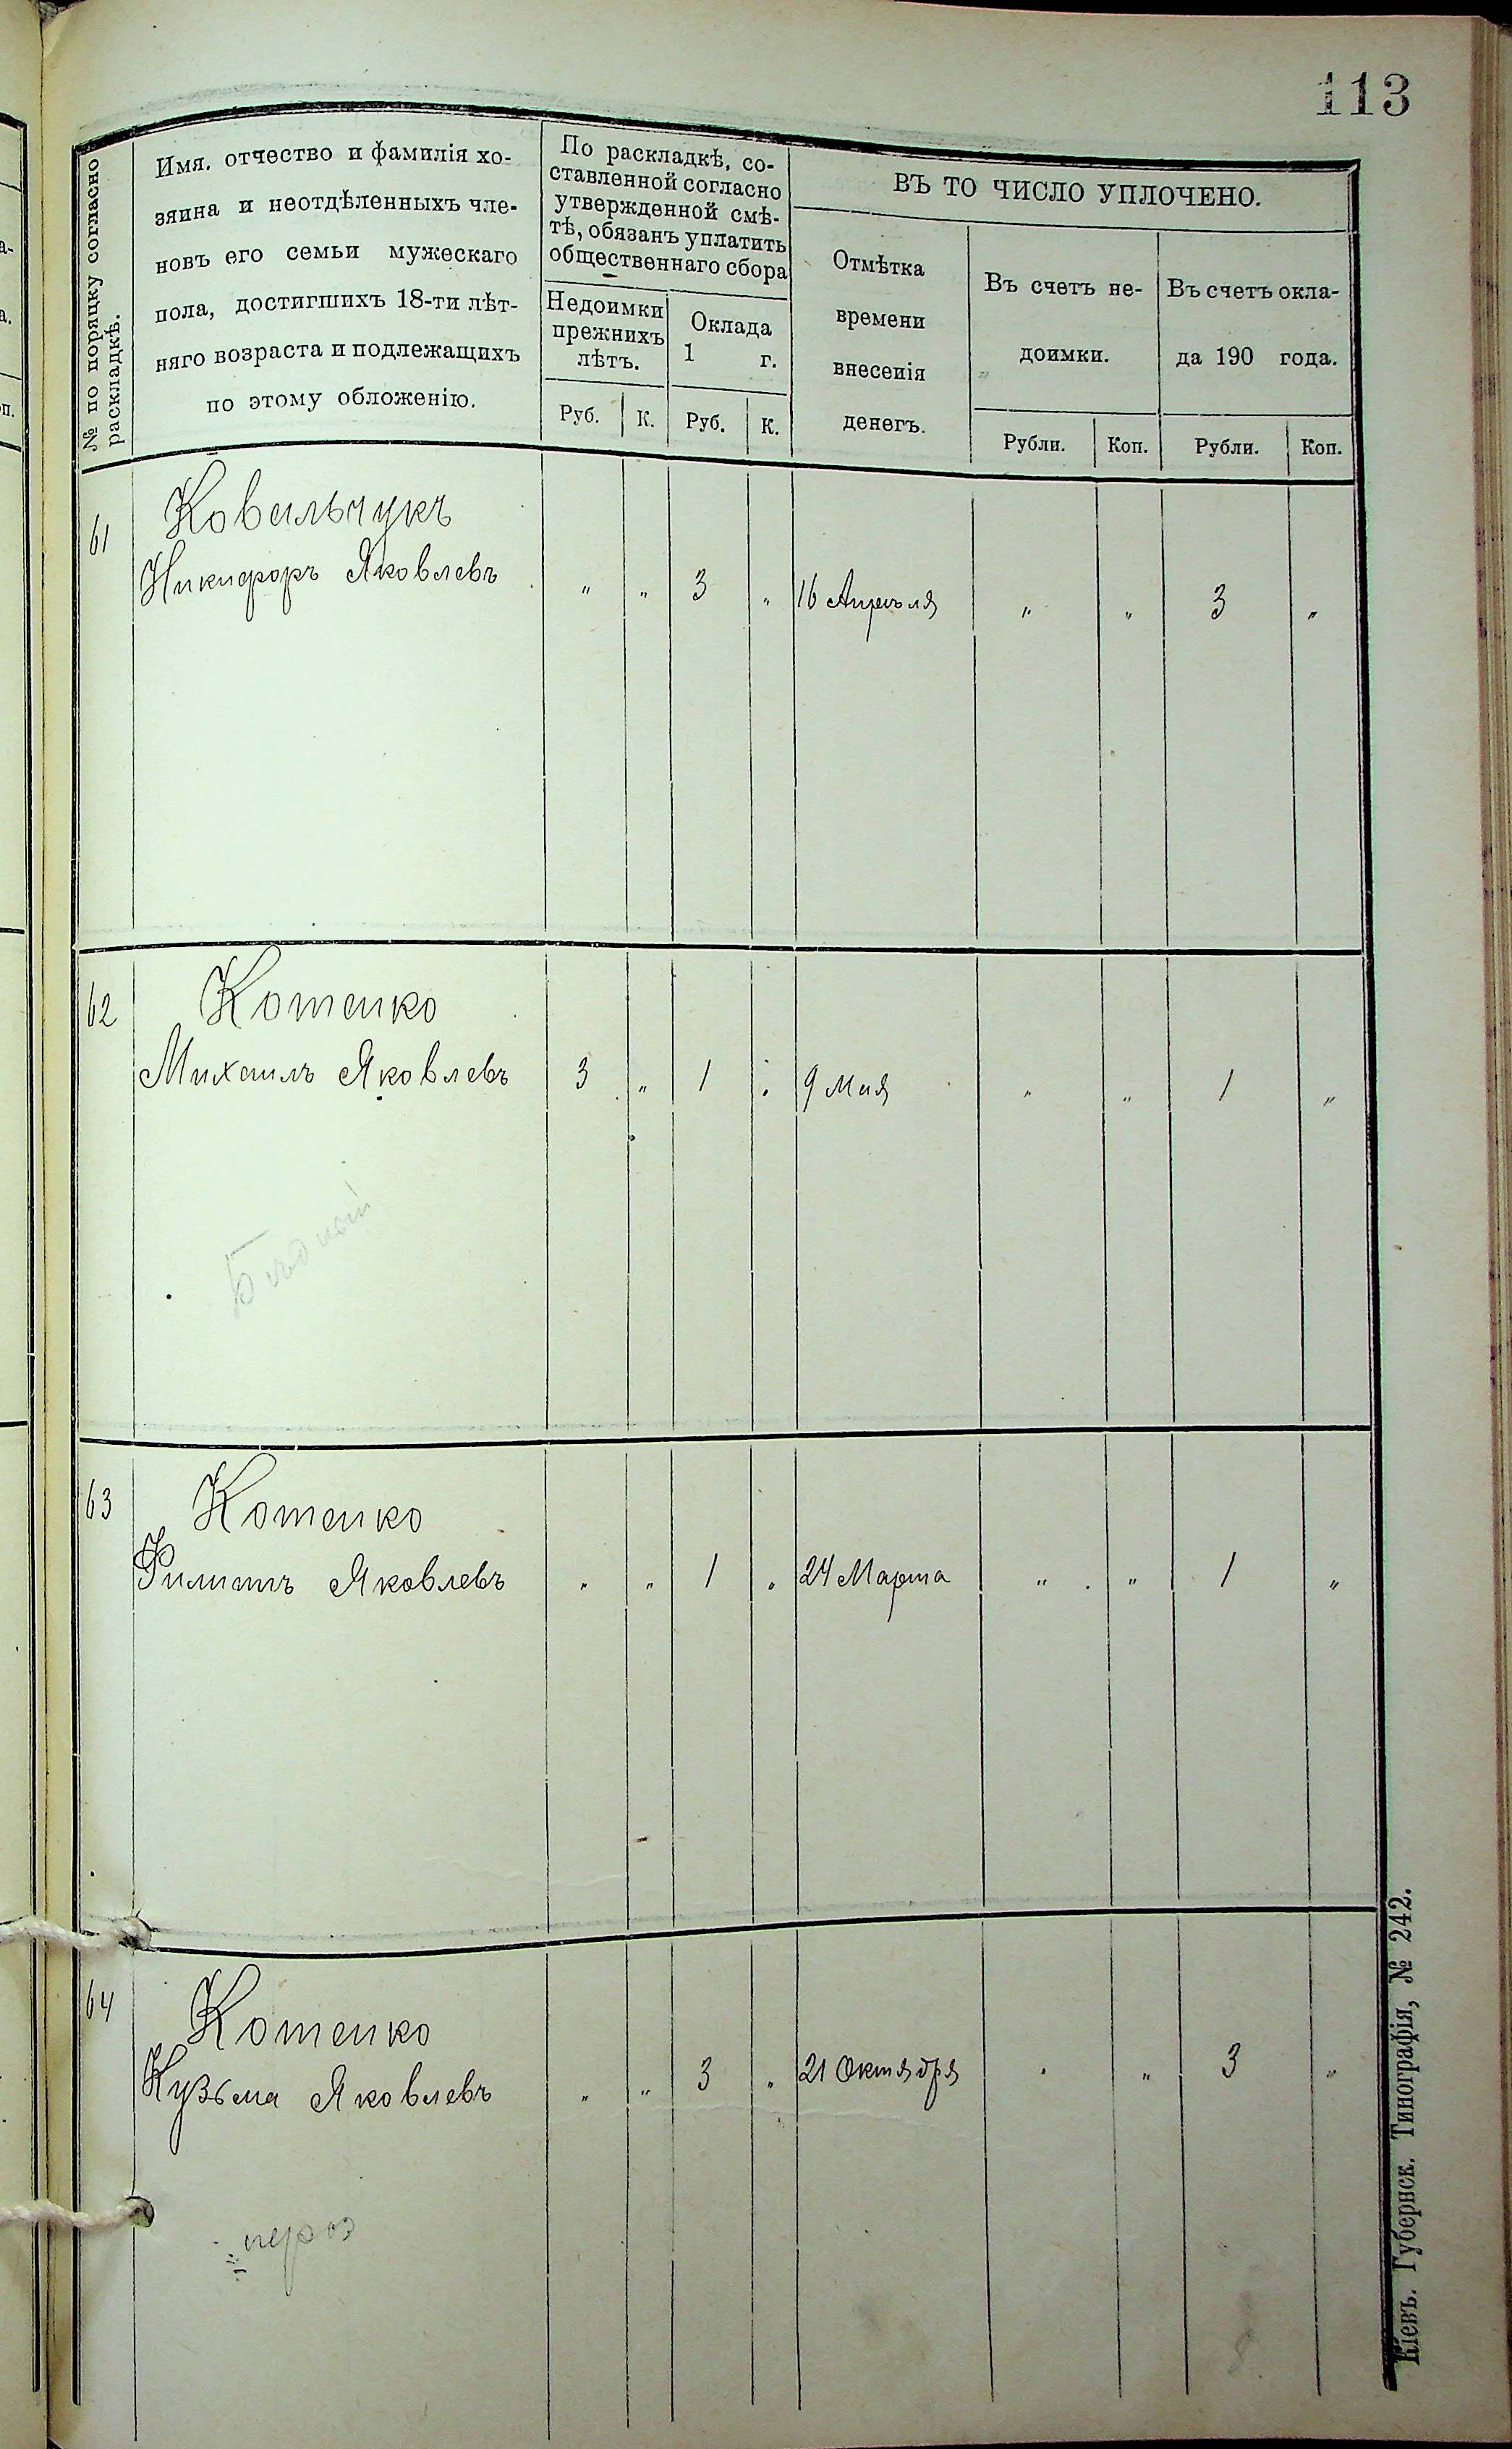 113
№ по порядку согласно
раскладкѣ.
Имя, отчество и фамилія хо-
зяина и неотдѣленныхъ чле-
новъ его семьи мужескаго
пола, достигшихъ 18-ти лѣт-
няго возраста и подлежащихъ
по этому обложенію.
По раскладкѣ, со-
ставленной согласно
утвержденной смѣ-
тѣ, обязанъ уплатить
общественнаго сбора
Недоимки
прежнихъ
лѣтъ.
Оклада
1 г.
Руб. К. Руб. К.
ВЪ ТО ЧИСЛО УПЛОЧЕНО.
Отмѣтка
времени
внесенія
денегъ.
Въ счетъ не-
доимки.
Въ счетъ окла-
да 190 года.
Рубли. Коп. Рубли. Коп.
61 Ковальчукъ
Никифоръ Яковлевъ " " 3 " 16 Апрѣля " " 3 "
62 Котенко
Михаилъ Яковлевъ 3 " 1 " 9 Мая " " 1 "
Бѣдный
63 Котенко
Филиппъ Яковлевъ " " 1 " 24 Марта " " 1 "
64 Котенко
Кузьма Яковлевъ " " 3 " 21 Октября " " 3 "
Кіевъ. Губернск. Типографія, № 242.